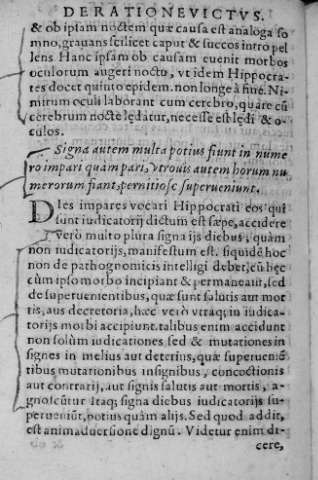 DE RATIONE VICTVS.
& ob ipsam noctem quæ causa est analoga so
mno, grauans scilicet caput & succos intro pel
lens Hanc ipsam ob causam euenit morbos
oculorum augeri noctu, vt idem Hippocra-
tes docet quinto epidem. non longe à fine. Ni-
mirum oculi laborant cum cerebro, quare cũ
cerebrum nocte lędatur, necesse est lędi & o-
culos.
Signa autem multa potius fiunt in nume
ro impari quàm pari, vtrouis autem horum nu
merorum fiant, perniciose superueniunt.
DIes impares vocari Hippocrati eos qui
sunt iudicatorij dictum est sæpe, accidere
vero multo plura signa ijs diebus, quàm
non iudicatorijs, manifestum est. siquidẽ hoc
non de pathognomicis intelligi debet, cũ hęc
cùm ipso morbo incipiant & permaneant, sed
de superuenientibus, quæ sunt salutis aut mor
tis, aus decretoria, hæc verò vtraq; in iudica-
torijs morbi accipiunt. talibus enim accidunt
non solùm iudicationes sed & mutationes in
signes in melius aut deterius, quæ superueniẽ
tibus mutationibus insignibus, concoctionis
aut contrarij, aut signis salutis aut mortis, a-
gnoscũtur Itaq; signa diebus iudicatorijs su-
perueniũt, potius quàm alijs. Sed quod addit,
est animaduersione dignũ. Videtur enim di-
cere,